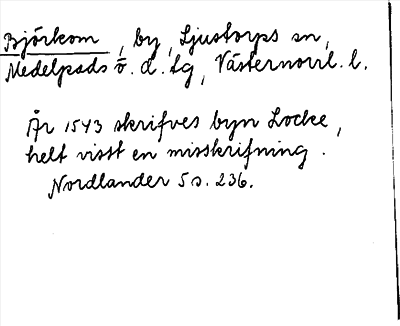 Björkom, by, Ljustorps sn,
Medelpads ö. d. tg, Västernorrl. l.
År 1543 skrifves byn Locke,
helt visst en misskrifning.
Nordlander 5 s. 236.